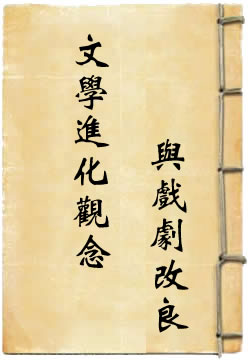 文學進化觀念
與戲劇改良